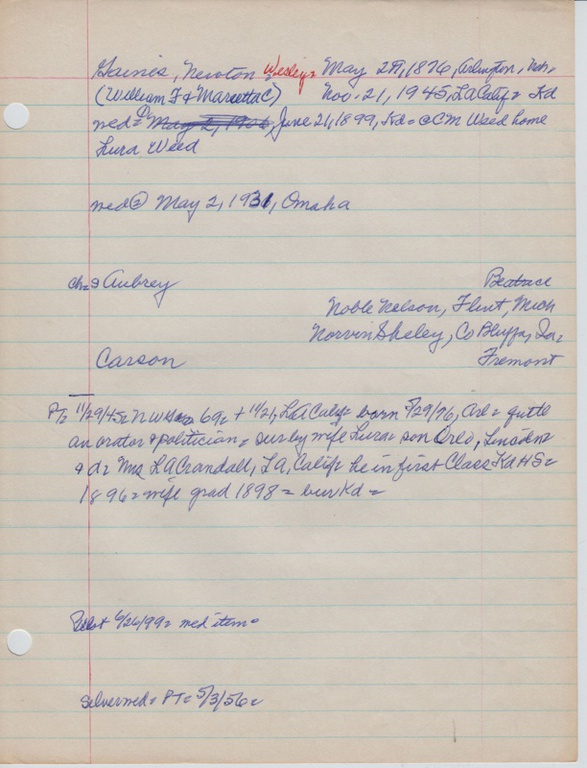 Gaines, Newton Wesley = May 29, 1876, Arlington, Neb,
(William F & Marietta C) Nov. 21, 1945, LA Calif = Kd
med = ① May 2, 1906, June 21, 1899, Kd = @ CM Weed home
Lura Weed
med ② May 2, 1931, Omaha
ch = 9 Aubrey Beatrice
Noble Nelson, Flint, Mich
Norvin Sheley, Co Bluffs, Ia =
Carson Fremont
PT = 11/29/45 = NW 69 = + 11/21, LA Calif = born 5/29/76, Arl = quite
an orator & politician = sur by wife Lura = son Oreo, Lincoln =
& d = Mrs LA Crandall, LA, Calif = he in first Class Kd HS =
1896 = wife grad 1898 = bur Kd =
Pilot 6/26/99 = med item =
Silver med = PT = 5/3/56 =